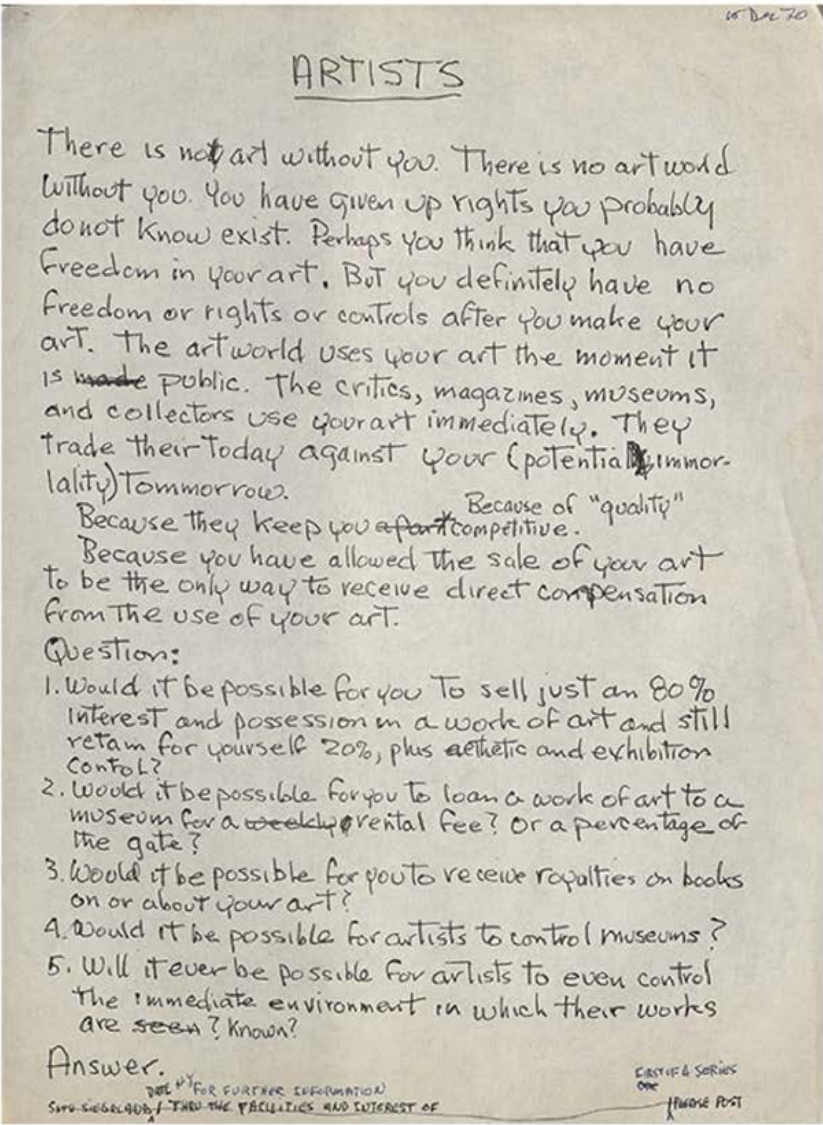 15 Dec 70
ARTISTS
There is no art without you. There is no art world
without you. You have given up rights you probably
do not know exist. Perhaps you think that you have
freedom in your art. But you definitely have no
freedom or rights or controls after you make your
art. The art world uses your art the moment it
is made public. The critics, magazines, museums,
and collectors use your art immediately. They
trade their Today against your (potential immor-
lality) Tommorrow.
Because of "quality"
Because they keep you apart competitive.
Because you have allowed the sale of your art
to be the only way to receive direct compensation
from the use of your art.
Question:
1. Would it be possible for you to sell just an 80%
interest and possession in a work of art and still
retain for yourself 20%, plus aethetic and exhibition
control?
2. Would it be possible for you to loan a work of art to a
museum for a weekly rental fee? Or a percentage of
the gate?
3. Would it be possible for you to receive royalties on books
on or about your art?
4. Would it be possible for artists to control museums?
5. Will it ever be possible for artists to even control
the immediate environment in which their works
are seen? Known?
Answer.
FOR FURTHER INFORMATION
FIRST OF A SERIES
SETH SIEGELAUB / THRU THE FACILITIES AND INTEREST OF
PLEASE POST